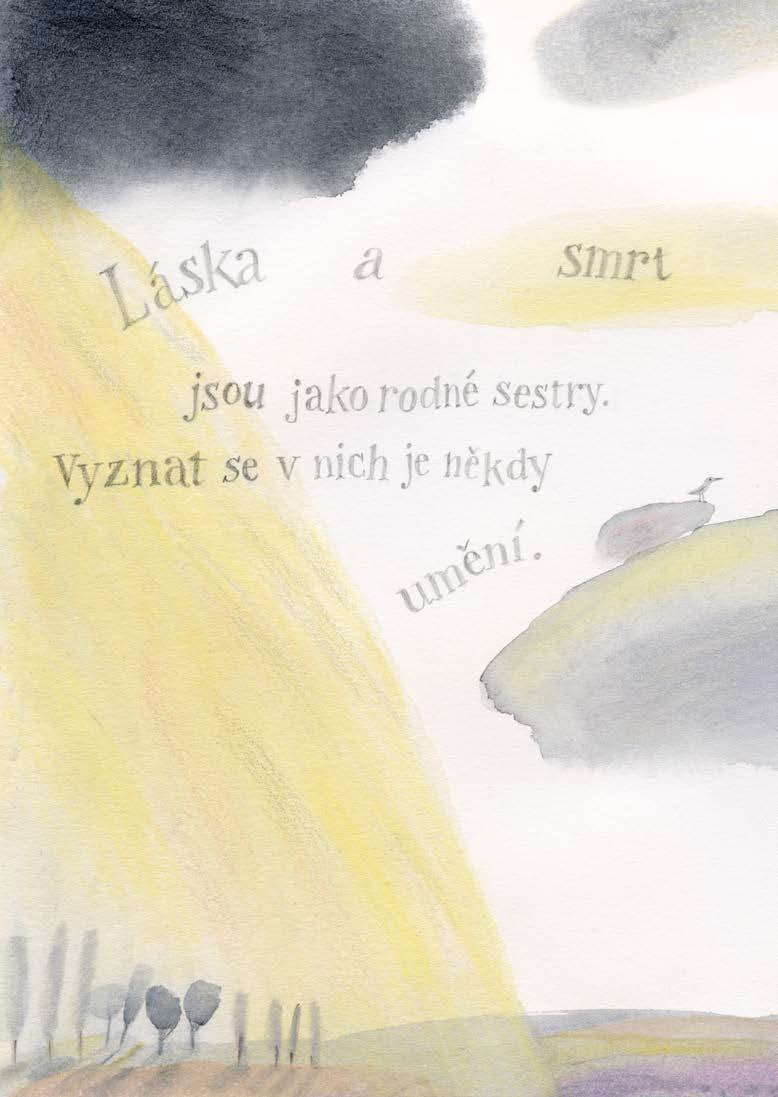 Láska a smrt
jsou jako rodné sestry.
Vyznat se v nich je někdy
umění.